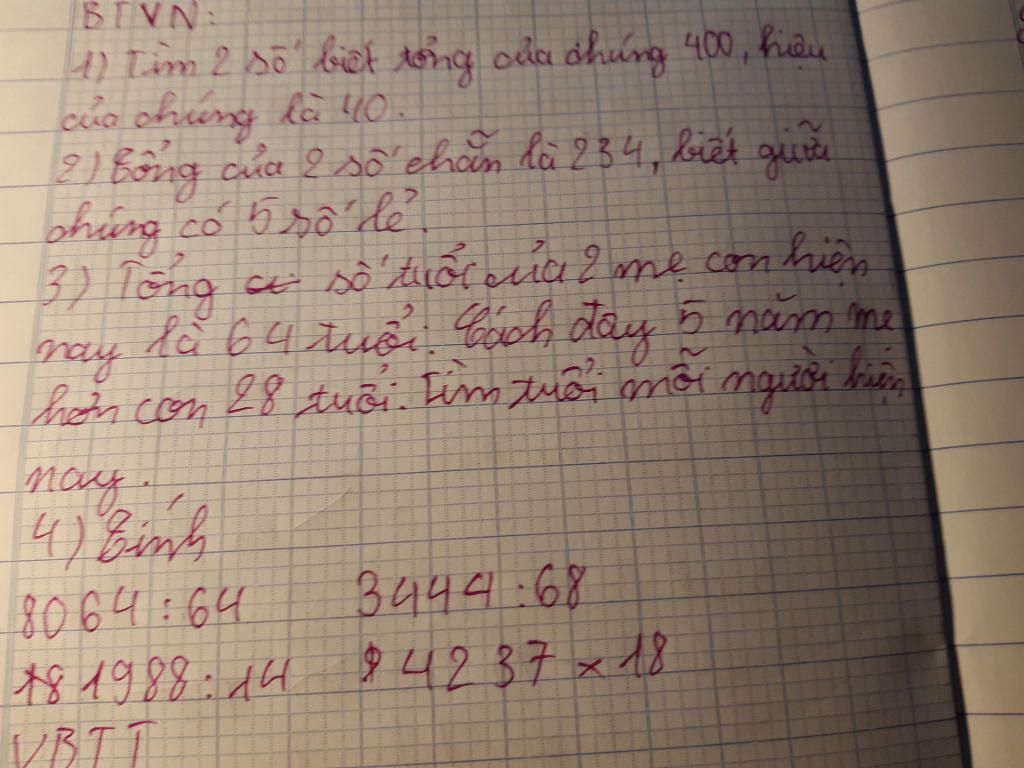 BTVN:
1) Tìm 2 số biết tổng của chúng 400, hiệu
của chúng là 40.
2) Tổng của 2 số chẵn là 234, biết giữa
chúng có 5 số lẻ.
3) Tổng số tuổi của 2 mẹ con hiện
nay là 64 tuổi. Cách đây 5 năm mẹ
hơn con 28 tuổi. Tìm tuổi mỗi người hiện
nay.
4) Tính
8064 : 64 3444 : 68
181988 : 14 4237 × 18
VBTT